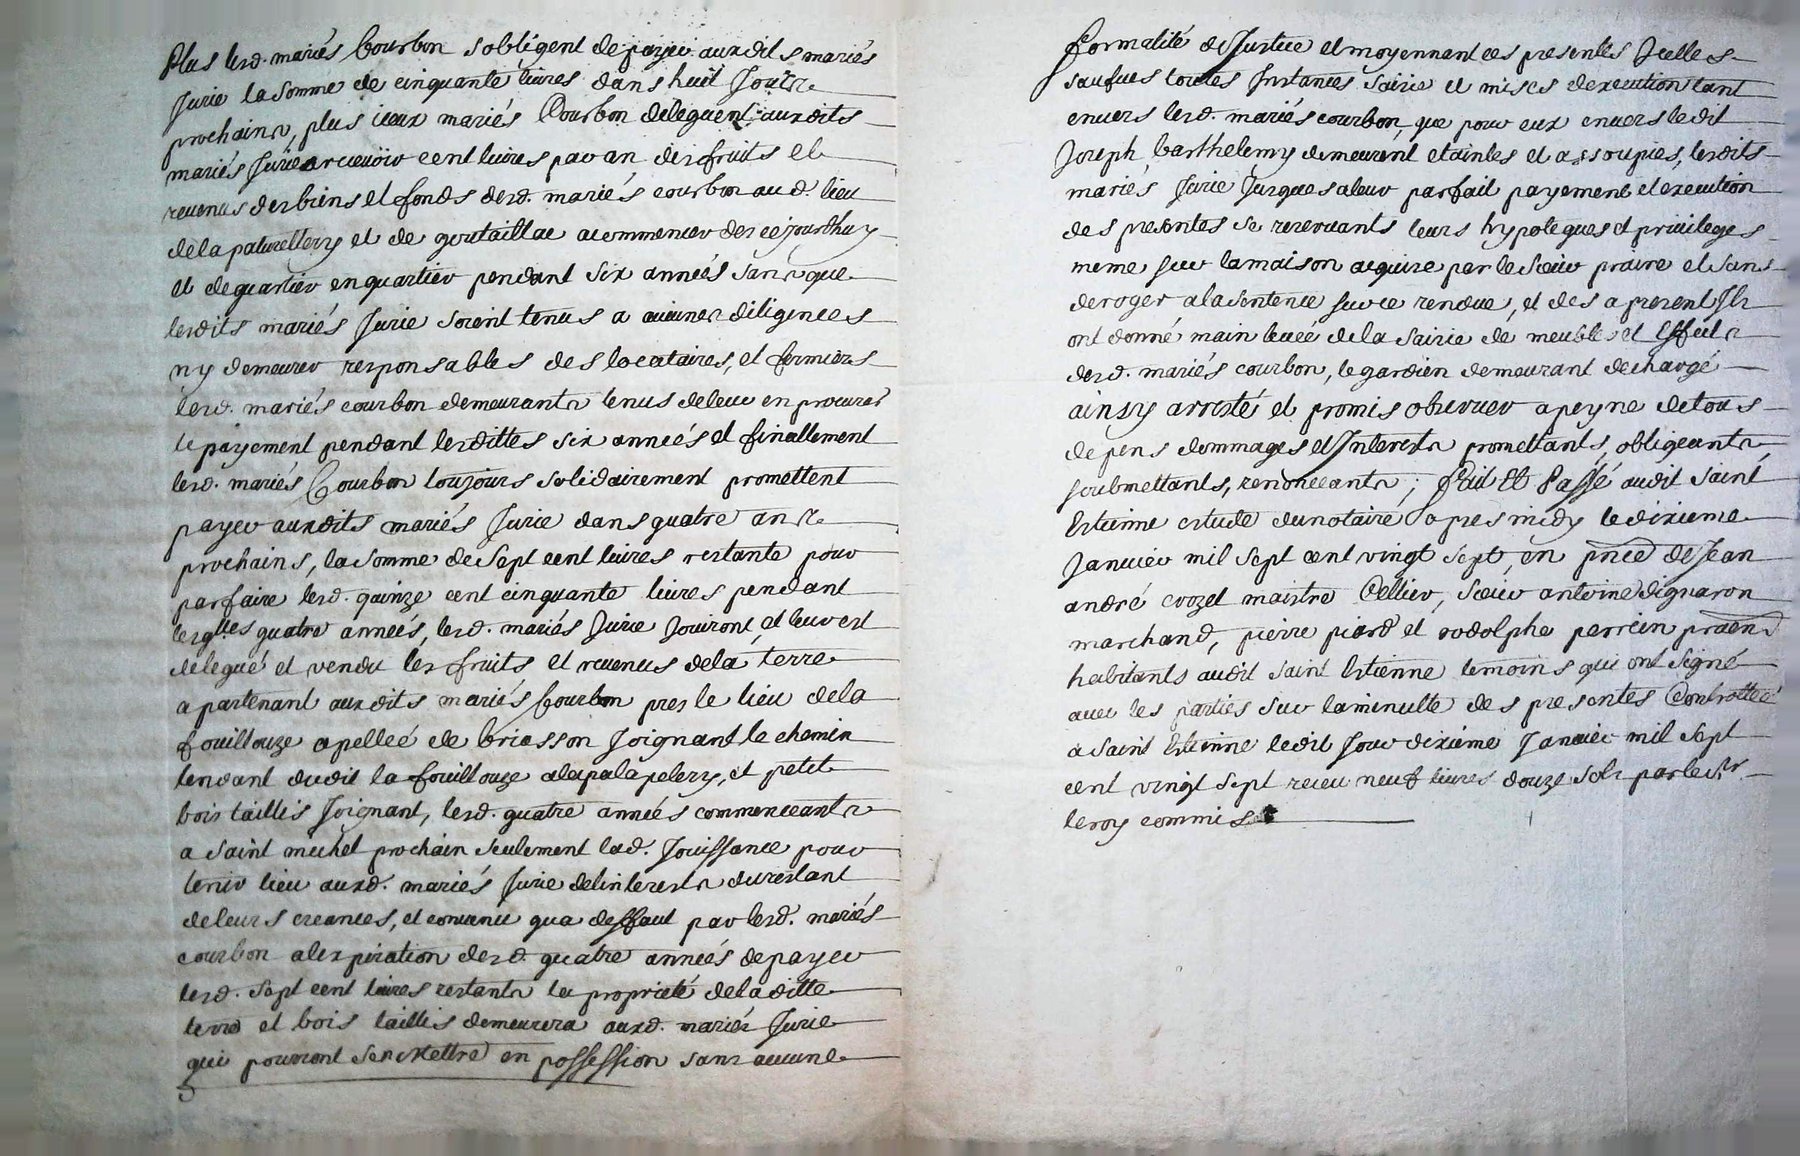 Plus lesd. mariés Courbon sobligent de payer auxdits mariés
Jurie la somme de cinquante livres dans huit Jours
prochains, plus iceux mariés Courbon deleguent auxdits
mariés Jurie a recevoir cent livres par an des fruits et
revenus des biens et fonds desd. mariés courbon aud. lieu
de la et de a commencer des cejourdhuy
et de quartier en quartier pendant six années sans que
lesdits mariés Jurie soient tenus a aucunes diligences
ny demeurer responsables des locataires, et fermiers
lesd. mariés courbon demeurants tenus de leur en procurer
le payement pendant lesdittes six années et finallement
lesd. mariés Courbon toujours solidairement promettent
payer auxdits mariés Jurie dans quatre ans
prochains, la somme de Sept cent livres restante pour
parfaire lesd. quinze cent cinquante livres pendant
lesqlles quatre années, lesd. mariés Jurie Jouiront, et leur est
delegué et vendu les fruits et revenus de la terre
apartenant auxdits mariés Courbon pres le lieu de la
fouillouze apelleé de briasson Joignant le chemin
tendant dudit la fouillouze a et petit
bois taillis Joignant, lesd. quatre années commenceants
a saint michel prochain seulement lad. Jouissance pour
tenir lieu auxd. mariés Jurie delinterests du restant
de leurs creances, et convenu qua deffaut par lesd. mariés
courbon alexpiration desd. quatre années de payer
lesd. sept cent livres restants la proprieté de laditte
terre et bois taillis demeurera auxd. mariés Jurie
qui pourront sen mettre en possession sans aucune
formalité de Justice et moyennant ces presentes Jcelles
saufves toutes Instances saisie et mises dexecution tant
envers lesd. mariés courbon, que pour eux envers ledit
Joseph barthelemy demeurent etaintes et assoupies, lesdits
mariés Jurie Jusques a leur parfait payement et execution
des presentes se reservants leurs hypoteques et privileges
meme sur la maison acquise par le Sieur praire et sans
deroger a la sentence sur ce rendue, et des a present Jls
ont donné main leveé de la saisie de meubles et Effects
desd. mariés courbon, le gardien demeurant dechargé
ainsy arresté et promis observer a peyne de tous
depens dommages et Interests promettants, obligeants
soubmettants, renonceants; fait Et Passé audit saint
Estienne estude du notaire apres midy le dixieme
Janvier mil sept cent vingt sept, en pnce de Jean
andré crozet maistre Cellier, Sieur antoine dignaron
marchand, pierre piard et rodolphe perrein praen
habitants audit saint Estienne temoins qui ont Signé
avec les parties sur la minutte des presentes Controlleé
a saint Estienne ledit Jour dixieme Janvier mil sept
cent vingt sept receu neuf livres douze sols par le sr
leroy commis